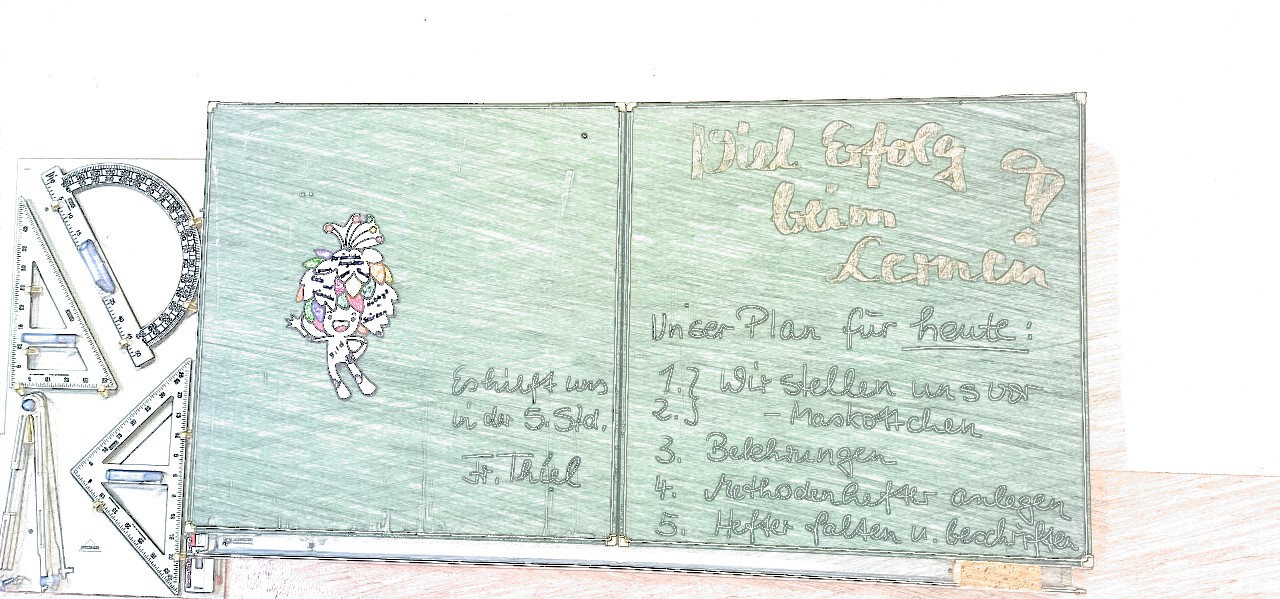 Es hilft uns
in der 5. Std.
Fr. Thiel
Viel Erfolg
beim
Lernen!
Unser Plan für heute:
1.} Wir stellen uns vor
2.} - Maskottchen
3. Belehrungen
4. Methodenhefter anlegen
5. Hefter falten u. beschriften